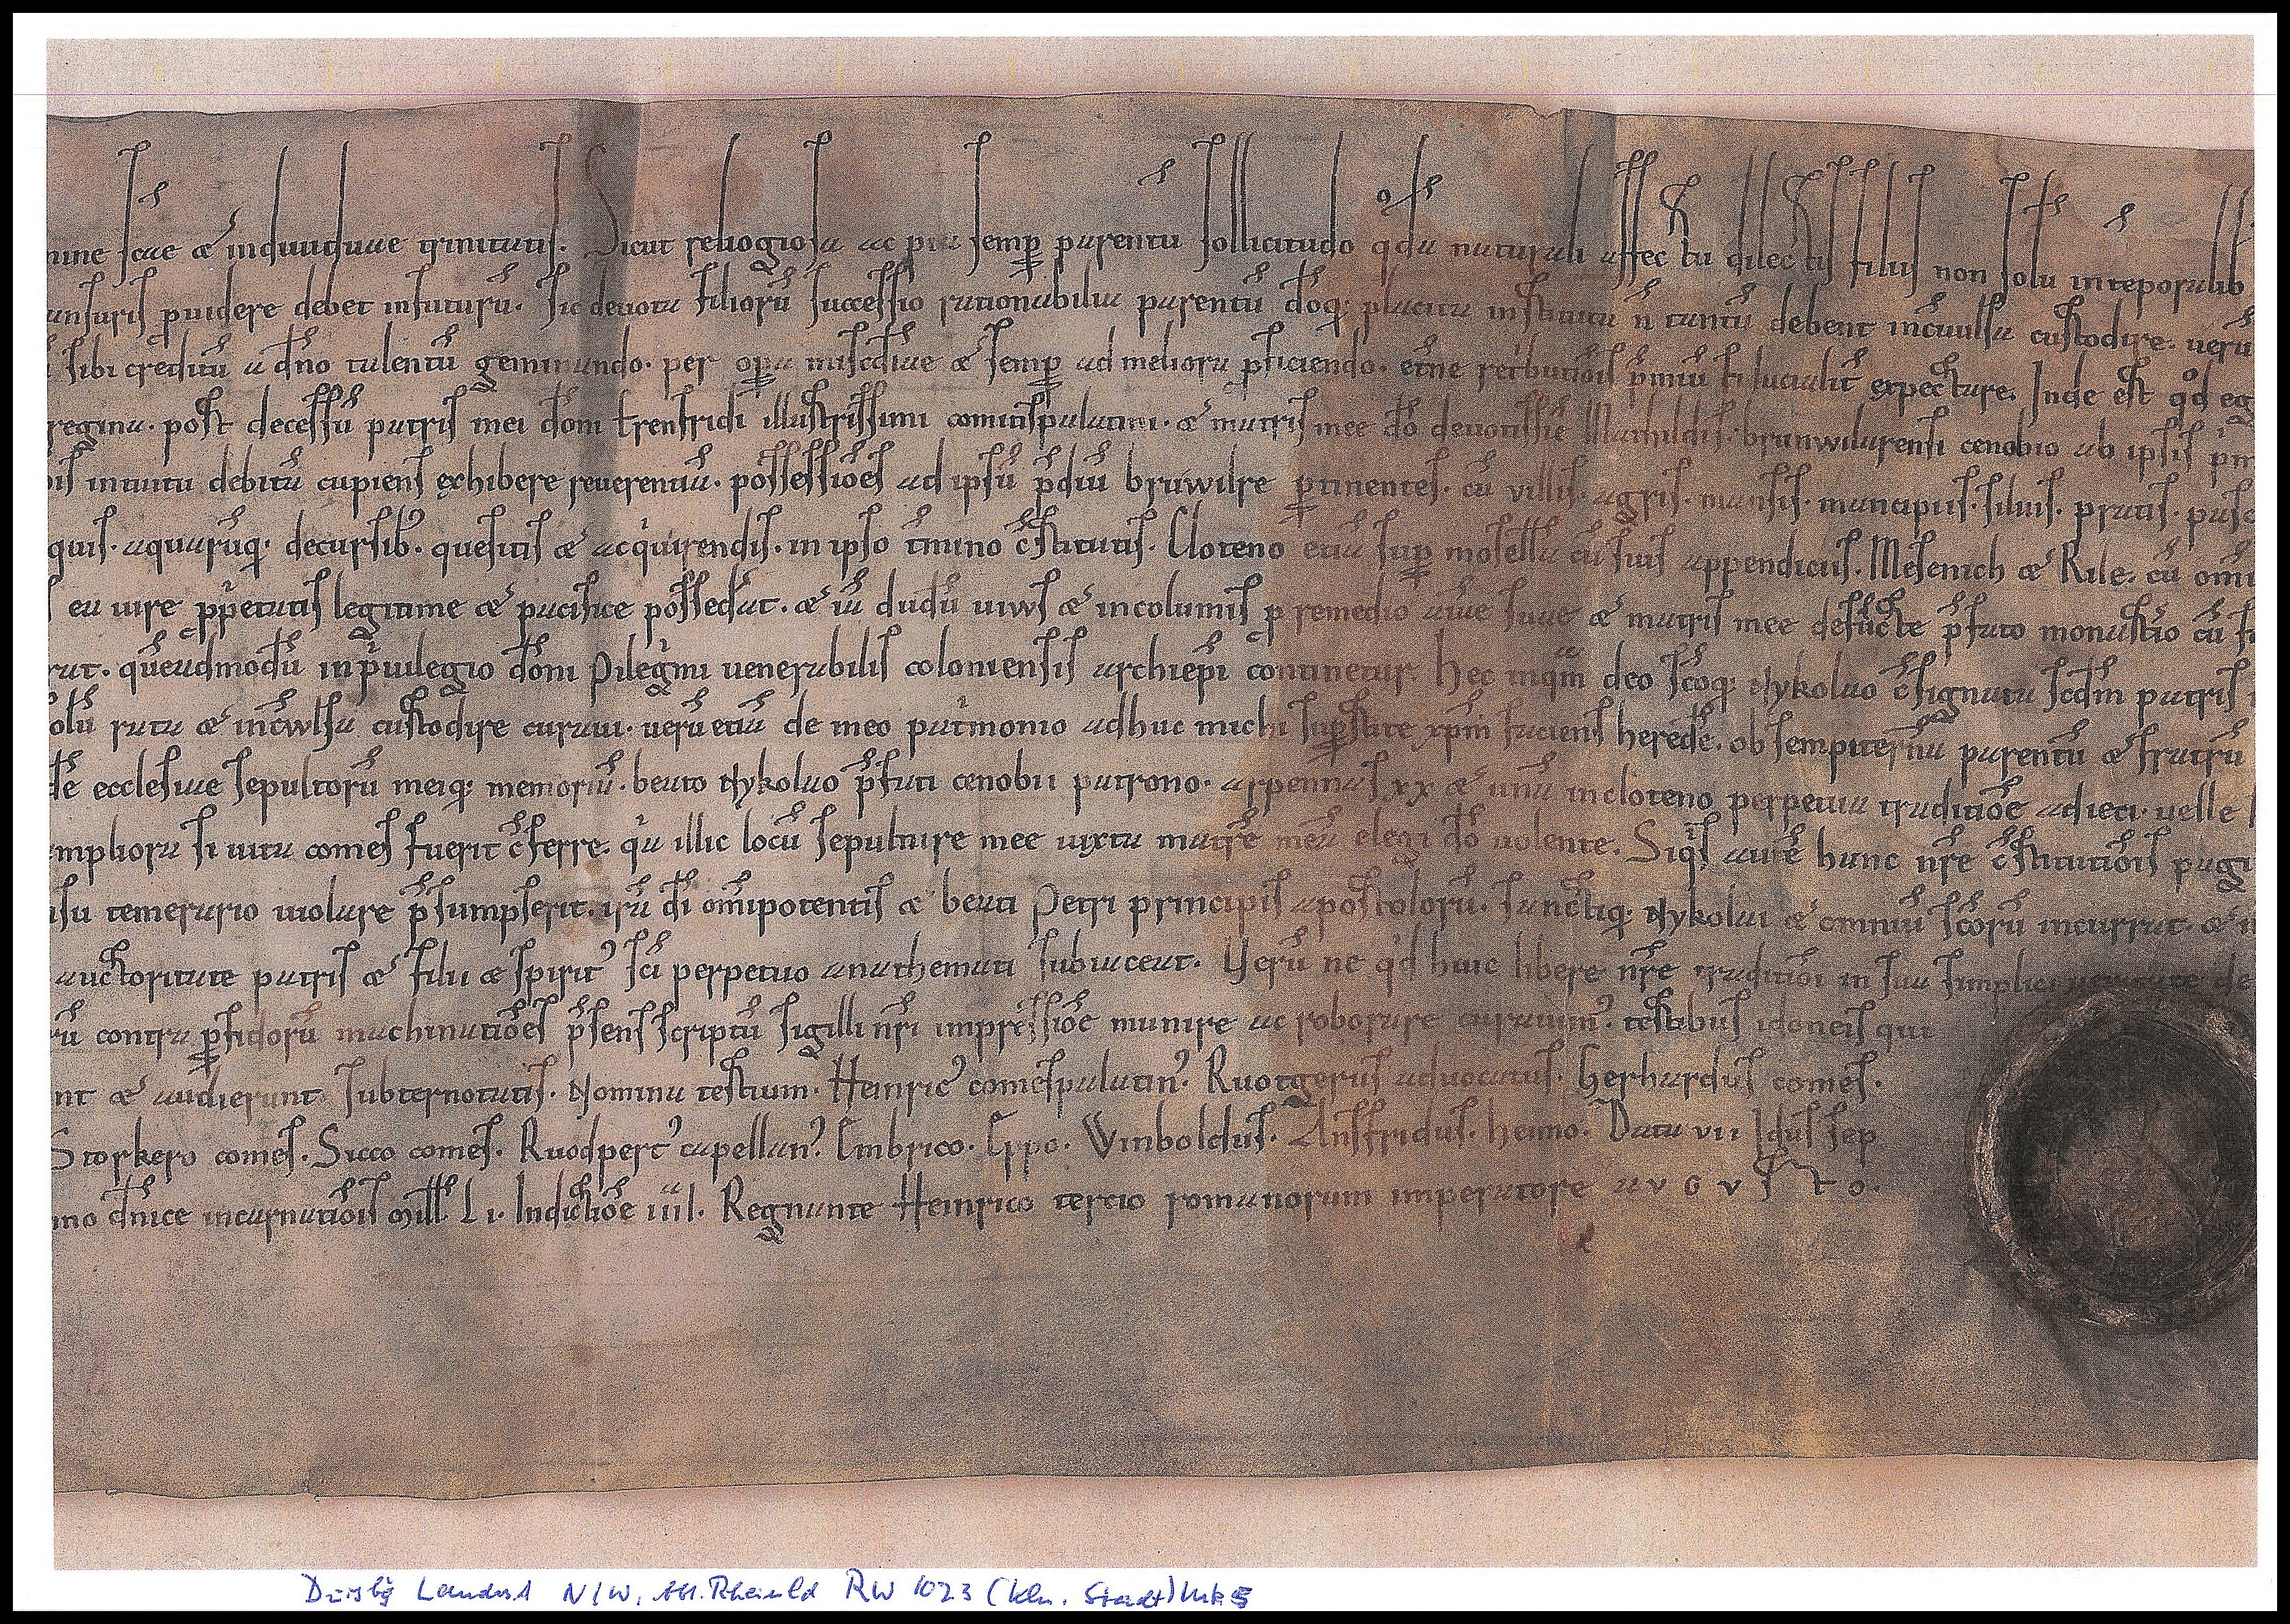 mine scae & individuae trinitatis. Sicut religiosa ac pia semp parentu sollicitudo qda naturali affectu dilectis filiis non solu intēporalib
ansuris puidere debet infuturū. Sic devota filiorū successio rationabilia parentū dōq; placita instituta n̄ tantū debent incuulsa custodire. uerū
sibi creditū a dn̄o talentū geminando. per opa misc̄diae & semp ad meliora pficiendo. et̄ne ret̄butiōis p̄miū fiducialit̄ expectare. Inde est qd eg
regina. post decessū patris mei dōm Erenfridi illustrissimi comitispalatini. & matris mee dō deuotissīe Mathildis. brunwilarensi cenobio ab ipsis
intuitu debitū cupiens exhibere reuerentiā. possessiōes ad ipsū p̄diū brūwilre ptinentes. cū villis. agris. mansis. mancipiis. siluis. pratis. pasc
quis. aquarūq; decursib; quesitis & acquirendis. in ipso t̄mino c̄stitutis. Cloteno etiā sup mosellā cū suis appendiciis. Mesenich & Rile. cū omi
ea iure pp̄etatis legitime & pacifice possedat. & iā dudū uiuus & incolumis p remedio aīae suae & matris mee defūcte p̄fato monast̄io cū
rat. quēadmodū inp̄uilegio dōni Pileḡmi uenerabilis coloniensis archiep̄i continetur. Hec inqm̄ deo sc̄oq; Nykolao c̄signata sc̄dm patris
olū rata & inc̄wlsa custodire curaui. uerū etiā de meo pat̄monio adhuc michi sup̄stite xpm̄ faciens heredē. ob sempiternā parentū & fratrū
dē ecclesiae sepultorū meiq; memoriā. beato Nykolao p̄fati cenobii patrono. arpennas xx & unā incloteno perpetua traditiōe adieci. uelle
ampliora si uita comes fuerit c̄ferre. qa illic locū sepulture mee iuxta matrē meā elegi dō uolente. Siqs autē hanc nr̄e c̄stitutiōis pagi
ausu temerario uiolare p̄sumpserit. irā dī om̄ipotentis & beati Petri principis apostolorū. sanctiq; Nykolai & omniū sc̄orū incurrat. &
auctoritate patris & filii & spirit' sc̄i perpetuo anathemati subiaceat. Verū ne qd huic libere nr̄e traditiōi in sua simplici ueritate de
rū contra pfidorū machinatiōes p̄sens scriptū sigilli nr̄i impressiōe munire ac roborare curauim'. testibus idoneis qui
nt & audierunt subternotatis. Nomina testium. Heinric' comespalatin'. Ruotgerus aduocatus. Gerhardus comes.
Storkero comes. Sicco comes. Ruodpert' capellan'. Embrico. Eppo. Winboldus. Ansfridus. Heimo. Data vii Idus sep
nno dn̄ice incarnatiōis Mill. Li. Indictiōe iiii. Regnante Heinrico tercio romanorum imperatore avgvsto.
N/W, RW 1023